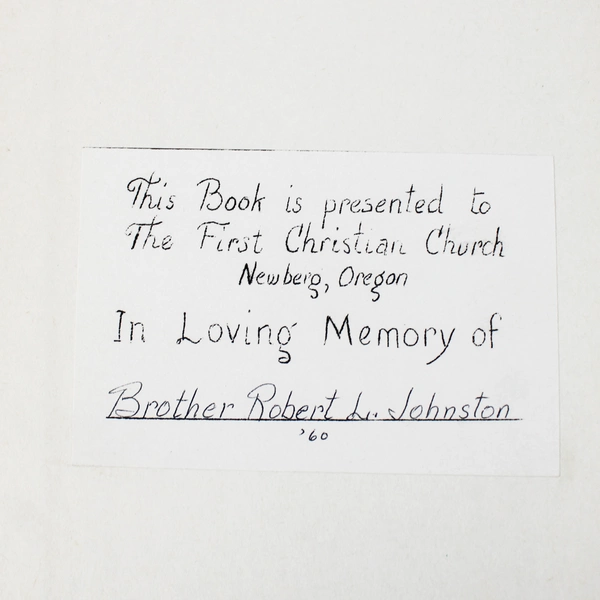 This Book is presented to
The First Christian Church
Newberg, Oregon
In Loving Memory of
Brother Robert L. Johnston
'60